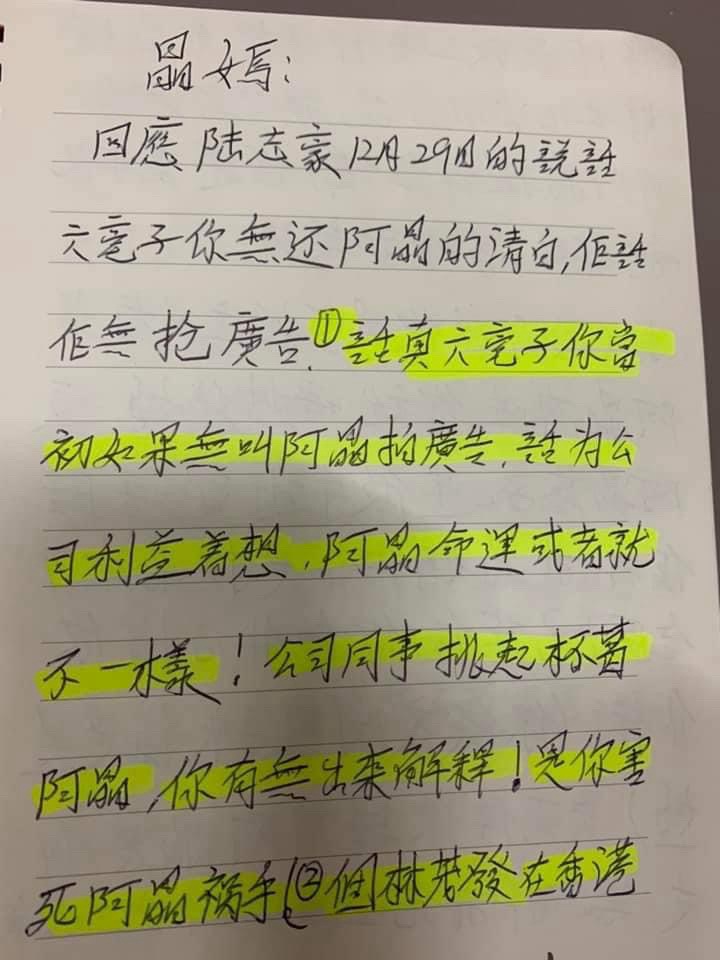 晶媽:
回應陸志豪12月29日的說話
六毫子你無还阿晶的清白,佢話
佢無抢廣告.①話真六毫子你當
初如果無叫阿晶拍廣告,話为公
司利益着想,阿晶命運或者就
不一樣!公司同事挑起杯葛
阿晶,你有無出來解释!是你害
死阿晶祸手!②個林若發在香港